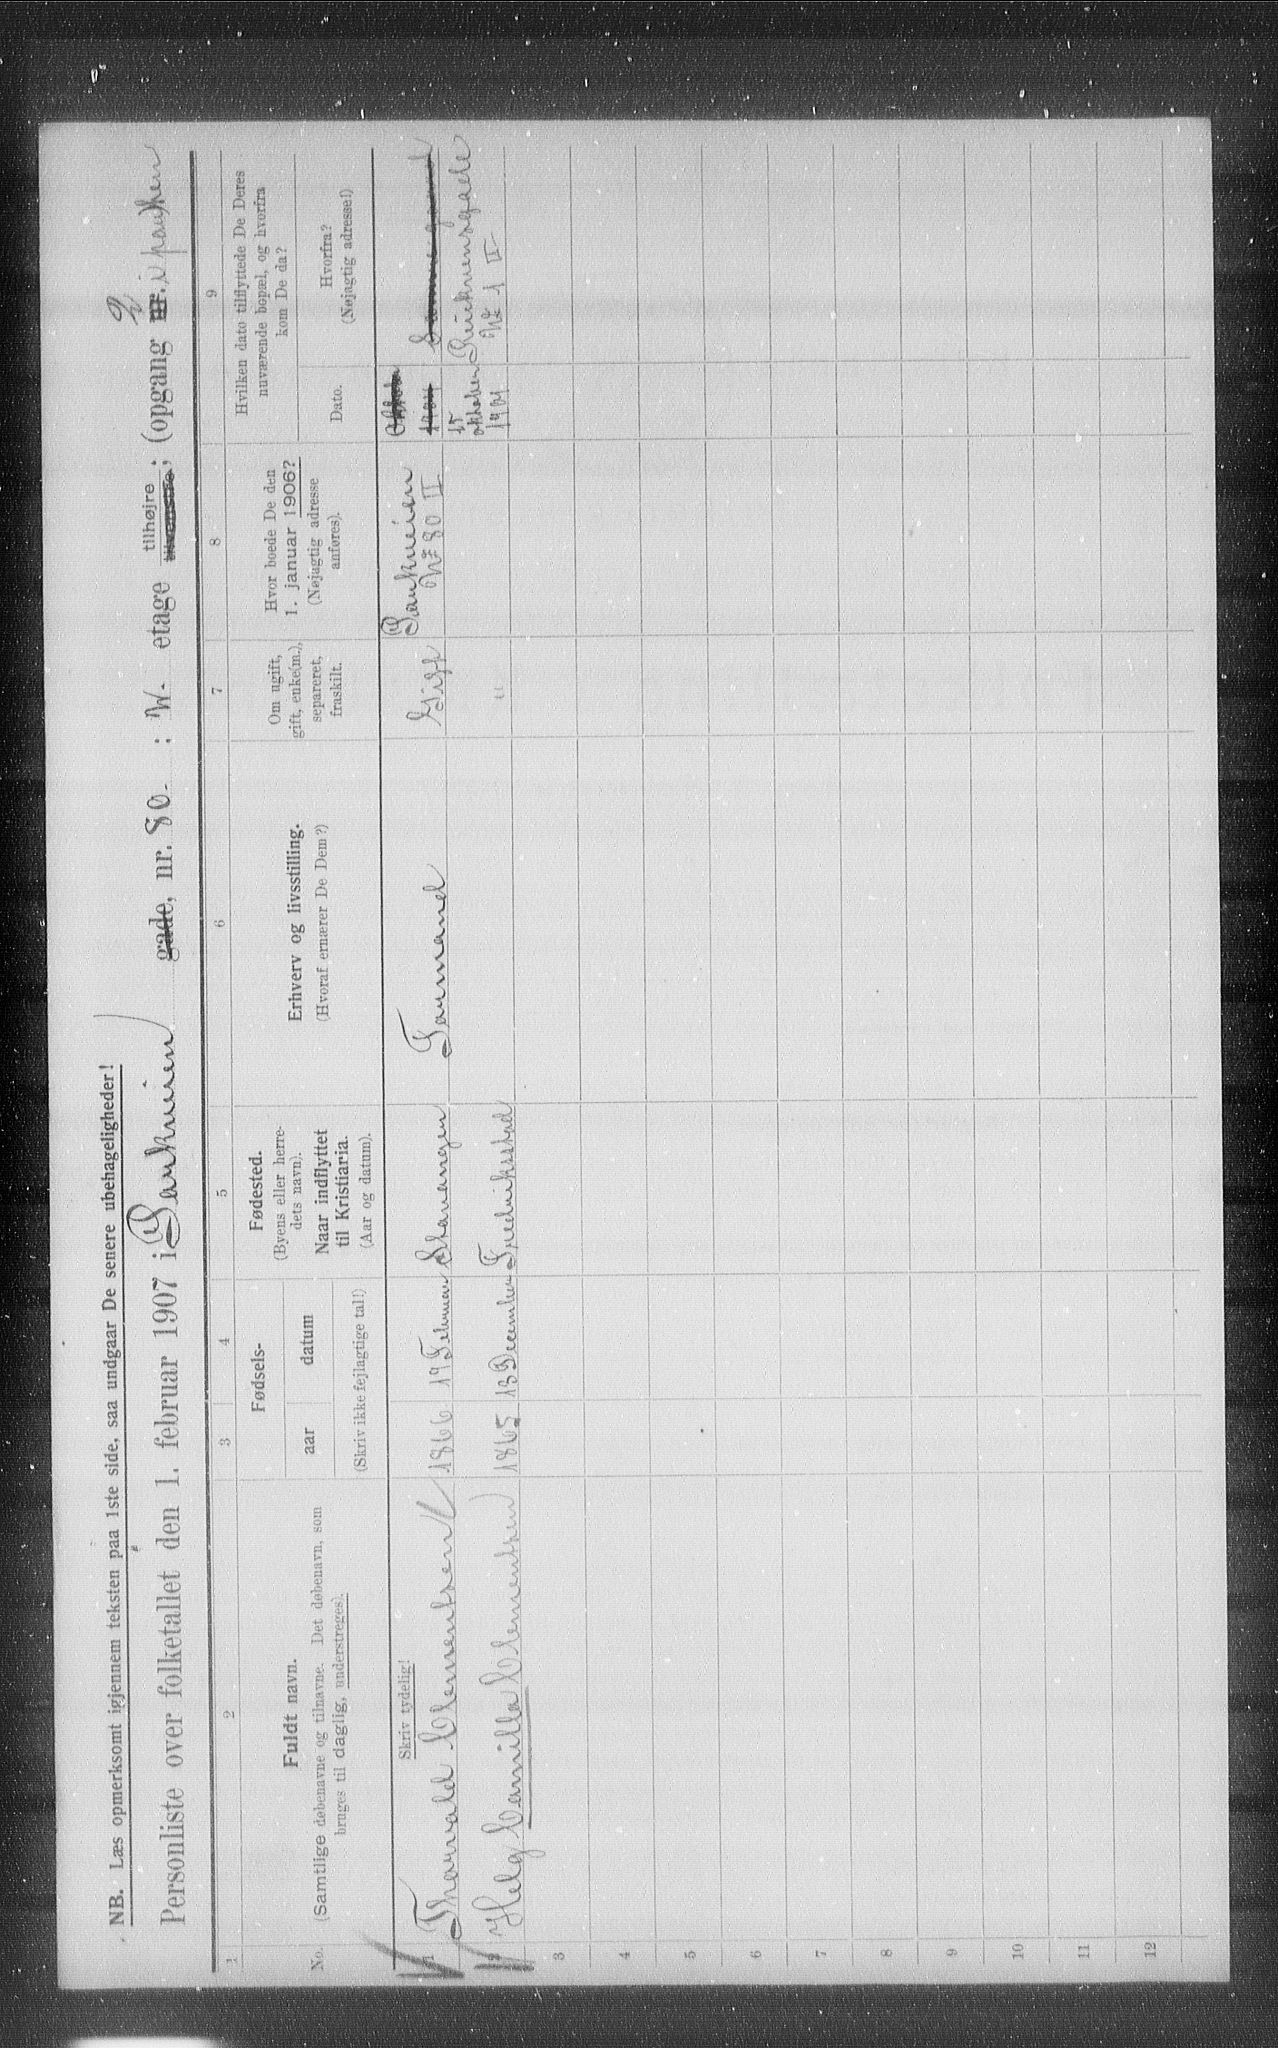 NB. Læs opmerksomt igjennem teksten paa 1ste side, saa undgaar De senere ubehageligheder!
Personliste over folketallet den 1. februar 1907 i Parkveien gade, nr. 80 : IV. etage tilhøjre tilvenstre; (opgang nr. i parken
2
1 2 3 4 5 6 7 8 9
No.
Fuldt navn.
(Samtlige døbenavne og tilnavne. Det døbenavn, som
bruges til daglig, understreges).
Fødsels-
aar datum
(Skriv ikke fejlagtige tal!)
Fødested.
(Byens eller herre-
dets navn).
Naar indflyttet
til Kristiania.
(Aar og datum).
Erhverv og livsstilling.
(Hvoraf ernærer De Dem?)
Om ugift,
gift, enke(m.),
separeret,
fraskilt.
Hvor boede De den
1. januar 1906?
(Nøjagtig adresse
anføres).
Hvilken dato tilflyttede De Deres
nuværende bopæl, og hvorfra
kom De da?
Dato.
Hvorfra?
(Nøjagtig adresse!)
Skriv tydelig!
1 Thorvald Clementsen 1866 19 Februar Stavanger Tanmand Gift Parkveien
No 80 II
2 Helg Camilla Clementsen 1865 13 December Fredriksstad " 15 oktober 1901
No 1 II
3
4
5
6
7
8
9
10
11
12